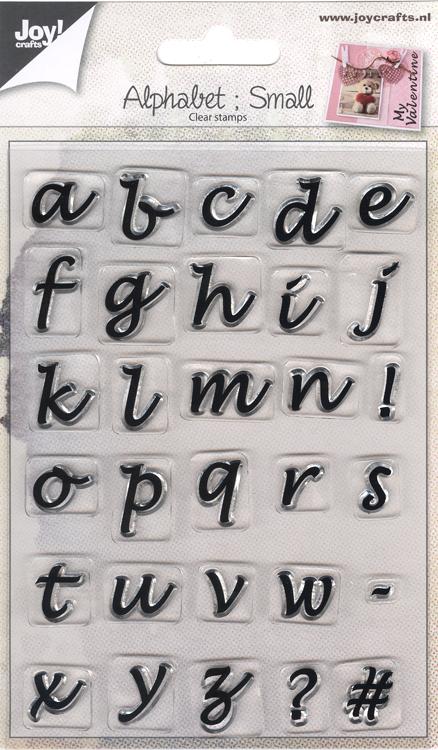 Joy!
crafts
www.joycrafts.nl
Alphabet ; Small
Clear stamps
My
Valentine
a b c d e
f g h i j
k l m n !
o p q r s
t u v w -
x y z ? #